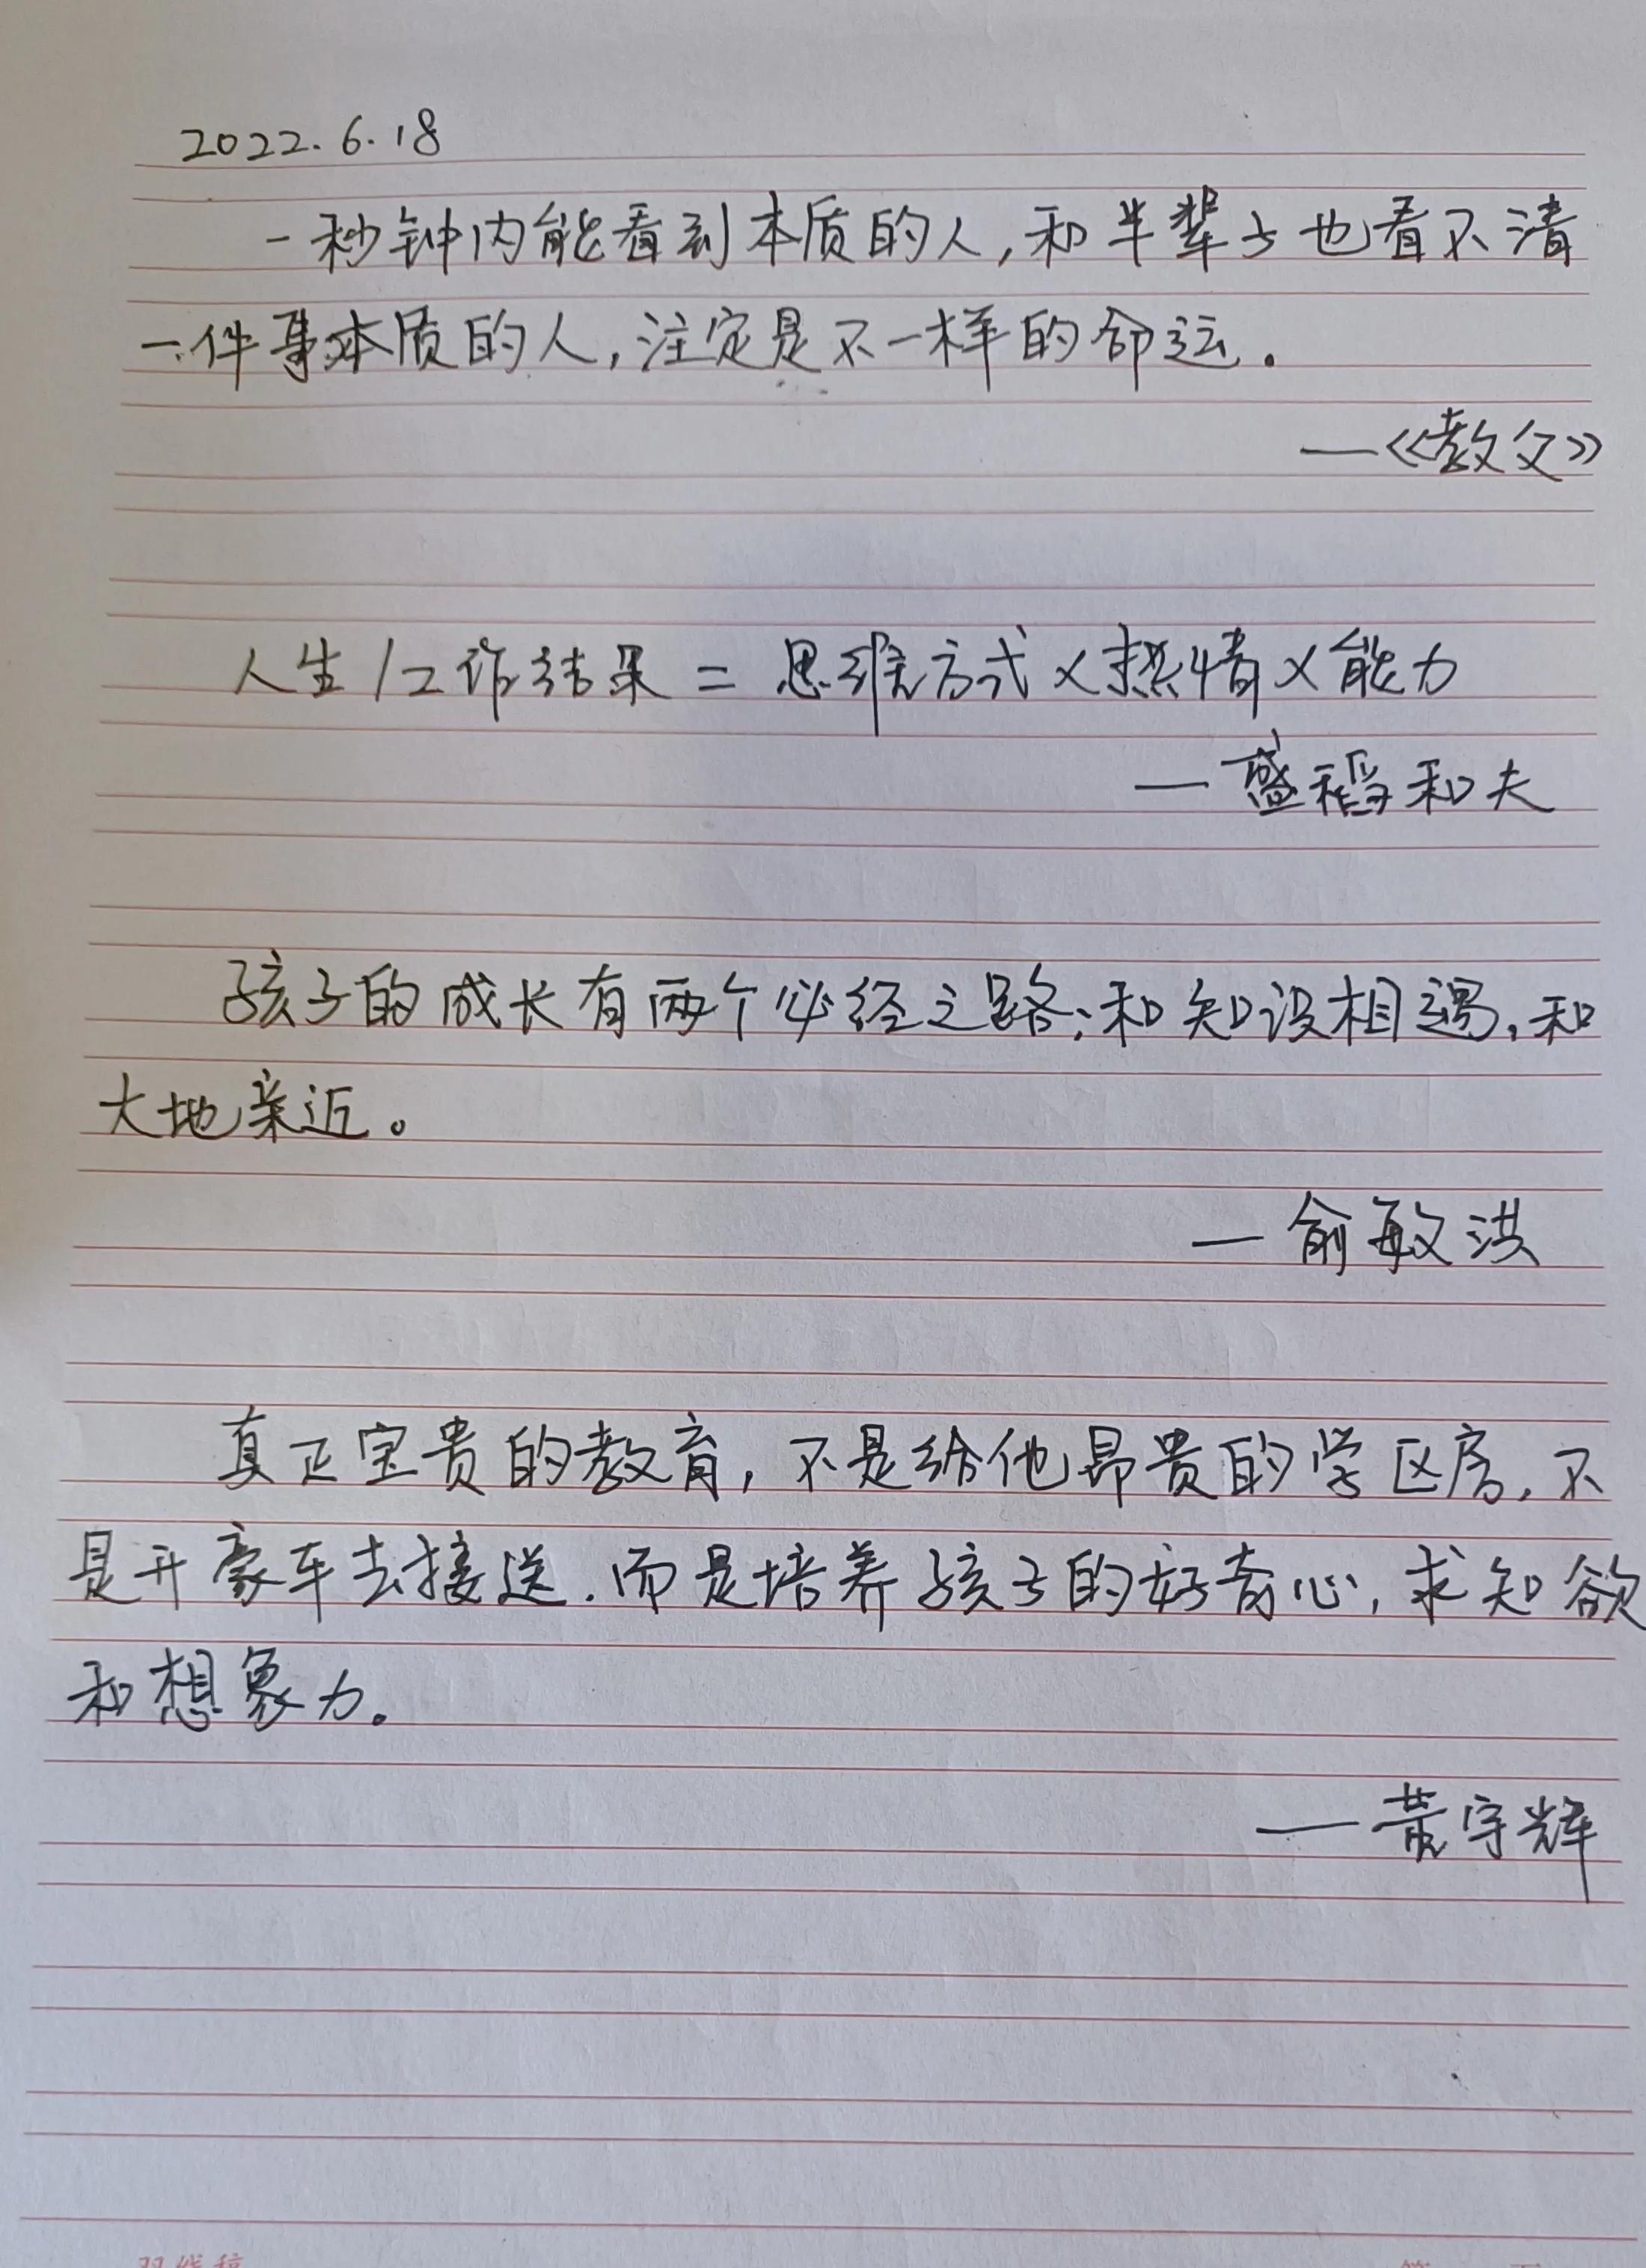 2022.6.18
一秒钟内能看到本质的人,和半辈子也看不清
一件事本质的人,注定是不一样的命运.
—《教父》
人生/工作结果=思维方式×热情×能力
—盛稻和夫
孩子的成长有两个必经之路:和知识相遇,和
大地亲近。
—俞敏洪
真正宝贵的教育,不是给他昂贵的学区房,不
是开豪车去接送.而是培养孩子的好奇心,求知欲
和想象力。
—董宇辉
双线稿